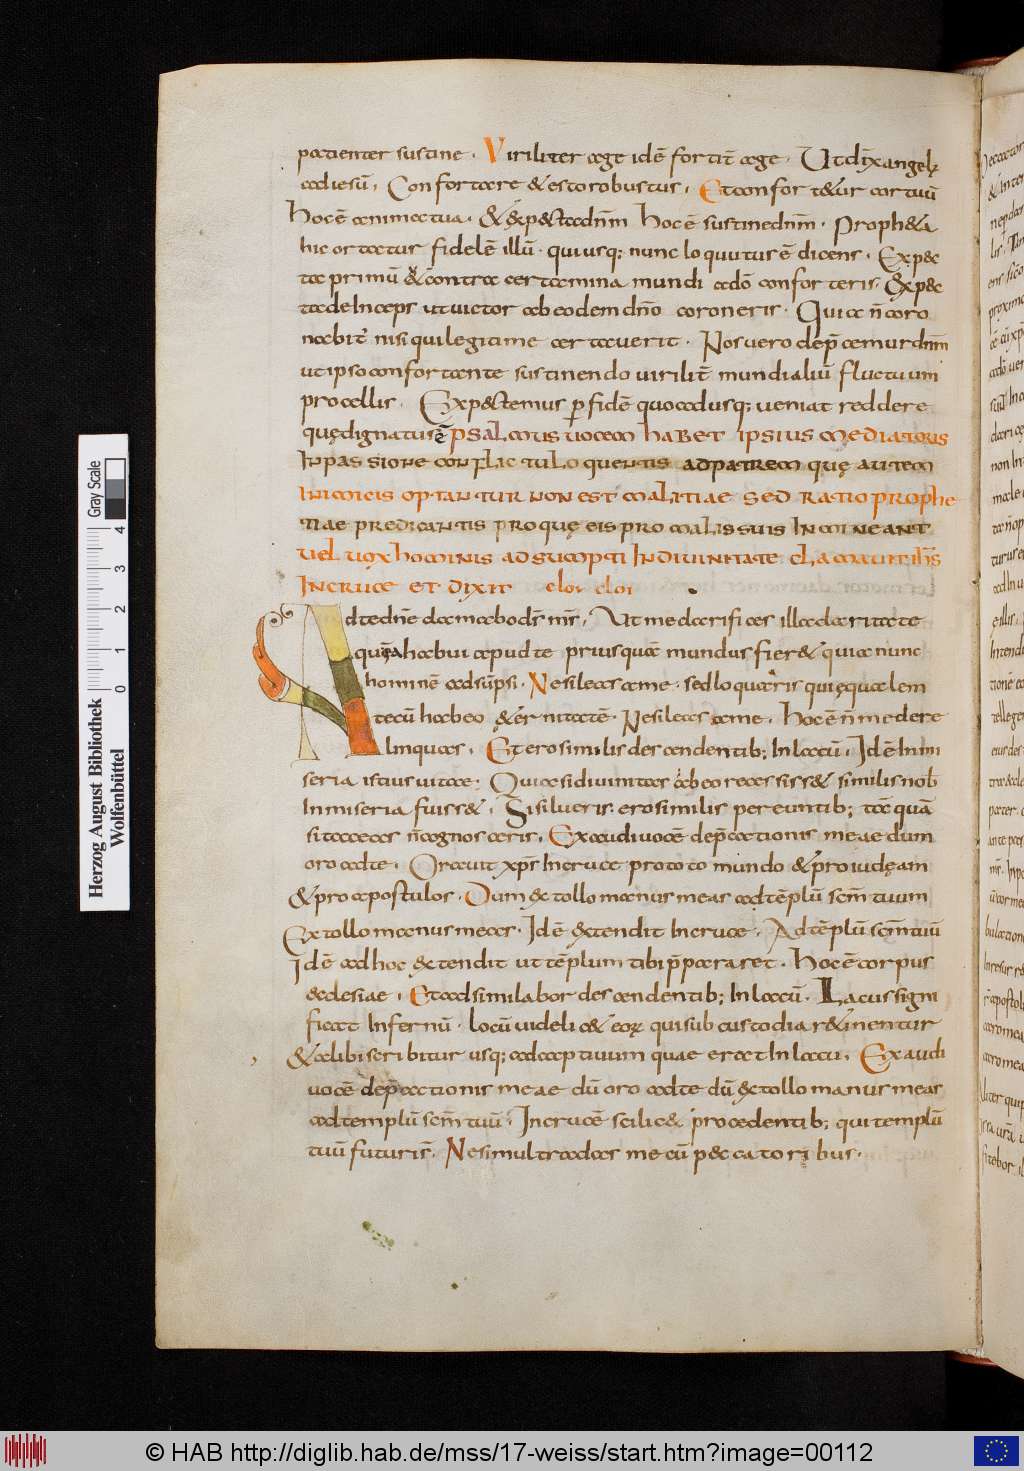 patienter sustine. Viriliter age idē fortit̄ age. Ut dix̄ angelꝰ
ad iesū. Confortare & esto robustus. Et confortetur cor tuū
hoc ē anima tua. & expecta dn̄m hoc ē sustine dn̄m. Propheta
hic ortatur fidelē illū. qui usq; nunc loquutus ē dicens. Expec
ta primū & contra certamina mundi ad ō conforteris. Expec
ta deinceps ut victor ab eodem dn̄o coroneris. Quia n̄ coro
nabit̉ nisi qui legitime certaverit. Nos vero dep̄cemur dn̄m
ut ipso confortante sustinendo virilit̄ mundialiū fluctuum
procellis. Expectemus p fidē quo adusq; veniat reddere
quę dignatus ē Psalmus vocem habet ipsius mediatoris
in passione conflic tu loquentis ad patrem quę autem
inimicis optantur non est malitiae sed ratio prophe
tiae predicantis pro quę eis pro malis suis inmineant
vel vox hominis adsumpti in divinitate clamavit ih̄s
in cruce et dixit eloi eloi
Ad te dn̄e clamabo d̄s m̄s. Ut me clarifices illa claritate
quęa habui apud te priusquā mundus fieret quia nunc
hominē adsūpsi. Ne sileas a me. sed loquaris qui ęqualem
tecū habeo &ernitatē. Ne sileas a me. hoc ē n̄ me dere
linquas. Et ero similis descendentib; in lacū. Id ē in mi
seria istius vitae. Quia si divinitas ab eo recessisset similis nob̄
in miseria fuisset. Si silueris. ero similis pereuntib; tā quā
si taceas n̄ cognosceris. Exaudi vocē dep̄cationis meae dum
oro ad te. Oravit xp̄s in cruce pro toto mundo & pro iudęam
& pro apostulos. Dum extollo manus meas ad tēplū scm̄ tuum
Extollo manus meas. Id ē extendit in cruce. Ad tēplū scm̄ tuū
Id ē ad hoc extendit ut tēplum tibi p̄pararet. Hoc ē corpus
ecclesiae. Et adsimilabor descendentib; in lacū. Lacus signi
ficat infernū. locū videlicet eoꝝ qui sub custodia retinentur
& alibi scribitur usq; ad captivum quae erat in lacu. Exaudi
vocē dep̄cationis meae dū oro ad te dū extollo manus meas
ad templū scm̄ tuū. In crucē scilicet procedentib; qui templū
tuū futuris̄. Ne simul tradas me cū peccatoribus.
Gray Scale
4
3
2
1
0
Herzog August Bibliothek
Wolfenbüttel
© HAB http://diglib.hab.de/mss/17-weiss/start.htm?image=00112